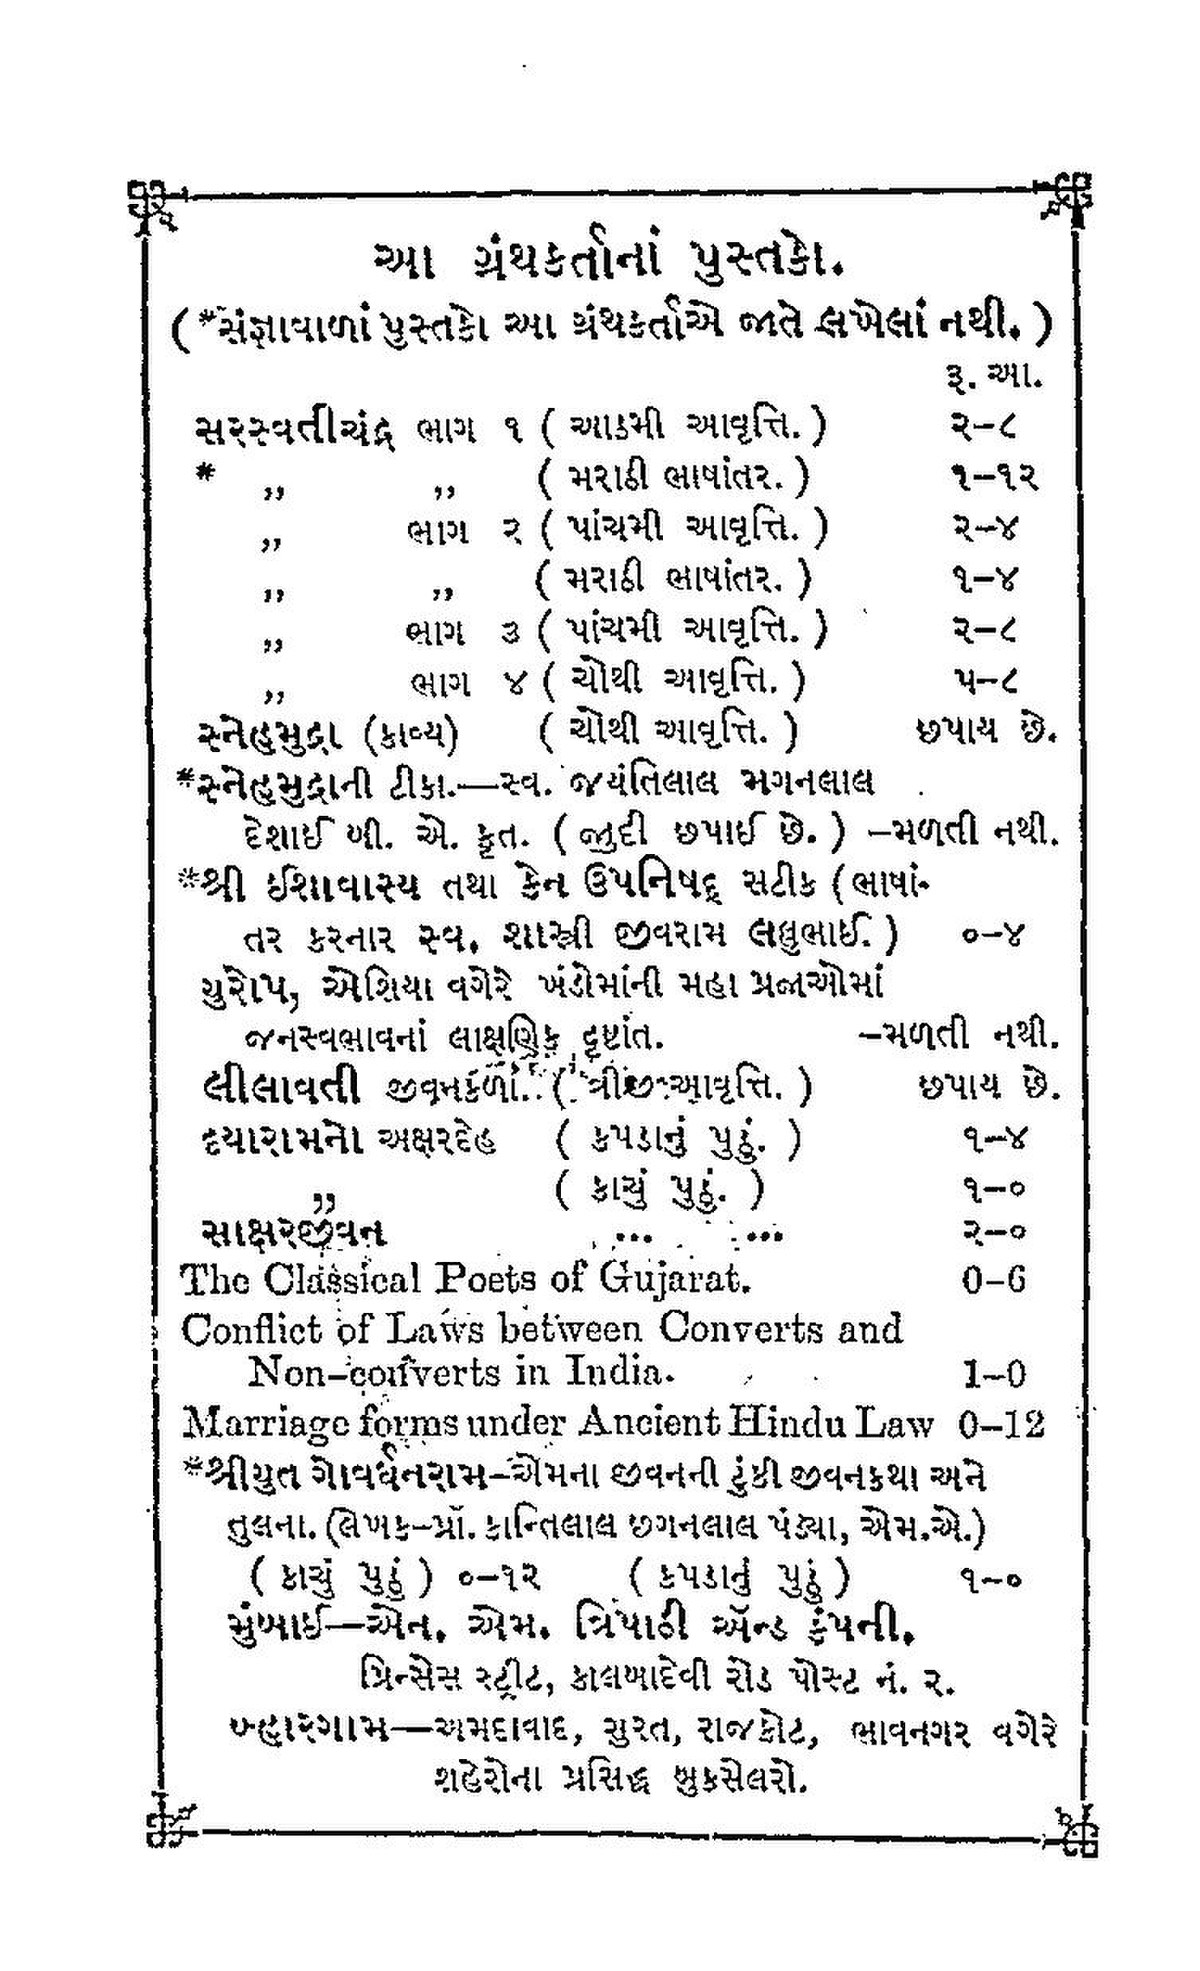 આ ગ્રંથકર્તાનાં પુસ્તકો.
(*સંજ્ઞાવાળાં પુસ્તકો આ ગ્રંથકર્તાએ જાતે લખેલાં નથી.)
રૂ. આ.
સરસ્વતીચંદ્ર ભાગ ૧ ( આઠમી આવૃત્તિ. ) ૨-૮
* ,, ,, ( મરાઠી ભાષાંતર. ) ૧-૧૨
,, ભાગ ૨ ( પાંચમી આવૃત્તિ. ) ૨-૪
,, ,, ( મરાઠી ભાષાંતર. ) ૧-૪
,, ભાગ ૩ ( પાંચમી આવૃત્તિ. ) ૨-૮
,, ભાગ ૪ ( ચોથી આવૃત્તિ. ) ૫-૮
સ્નેહમુદ્રા (કાવ્ય) ( ચોથી આવૃત્તિ. ) છપાય છે.
*સ્નેહમુદ્રાની ટીકા.—સ્વ. જયંતિલાલ મગનલાલ
દેશાઈ બી. એ. કૃત. ( જુદી છપાઈ છે. ) -મળતી નથી.
*શ્રી ઈશાવાસ્ય તથા કેન ઉપનિષદ્ સટીક ( ભાષાં-
તર કરનાર સ્વ. શાસ્ત્રી જીવરામ લલ્લુભાઈ. ) ૦-૪
યુરોપ, એશિયા વગેરે ખંડોમાંની મહા પ્રજાઓમાં
જનસ્વભાવનાં લાક્ષણિક દૃષ્ટાંત. -મળતી નથી.
લીલાવતી જીવનકળા. ( ત્રીજી આવૃત્તિ. ) છપાય છે.
દયારામનો અક્ષરદેહ ( કપડાનું પુઠું. ) ૧-૪
,, ( કાચું પુઠું. ) ૧-૦
સાક્ષરજીવન ... ... ૨-૦
The Classical Poets of Gujarat. 0-6
Conflict of Laws between Converts and
Non-converts in India. 1-0
Marriage forms under Ancient Hindu Law 0-12
*શ્રીયુત ગોવર્ધનરામ-એમના જીવનની ટુંકી જીવનકથા અને
તુલના. (લેખક-પ્રૉ. કાન્તિલાલ છગનલાલ પંડ્યા, એમ.એ.)
( કાચું પુઠું ) ૦-૧૨ ( કપડાનું પુઠું ) ૧-૦
મુંબાઈ—એન. એમ. ત્રિપાઠી ઍન્ડ કંપની.
પ્રિન્સેસ સ્ટ્રીટ, કાલબાદેવી રોડ પોસ્ટ નં. ૨.
બ્હારગામ—અમદાવાદ, સુરત, રાજકોટ, ભાવનગર વગેરે
શહેરોના પ્રસિદ્ધ બુકસેલરો.